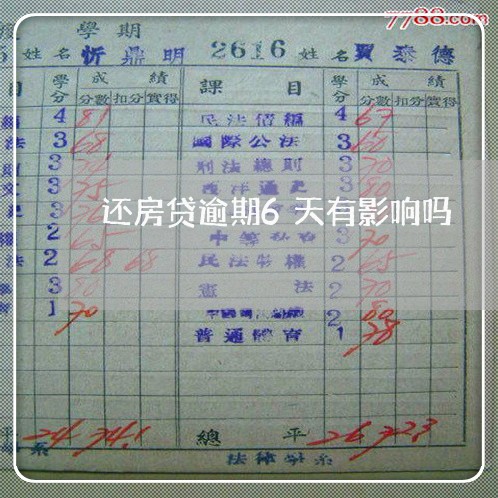 7788.com
學期
姓名 忻鼎明 2616 姓名 賈泰德
目 學分 成績 課目 學分 成績
分數 扣分 實得 分數 扣分 實得
4 81 民法債編 4 67
法 3 68 國際公法 3 60
3 刑法總則 3 70
3 75 西洋通史 3 80
还房贷逾期6 天有影响吗
2 65 3 70
法 2 68 68 民法物權 2 65
3 80 憲法 2 70
1 70 2 80
普通體育 1 78
平 24 74.1 總平 26 72.3
系 法律學系